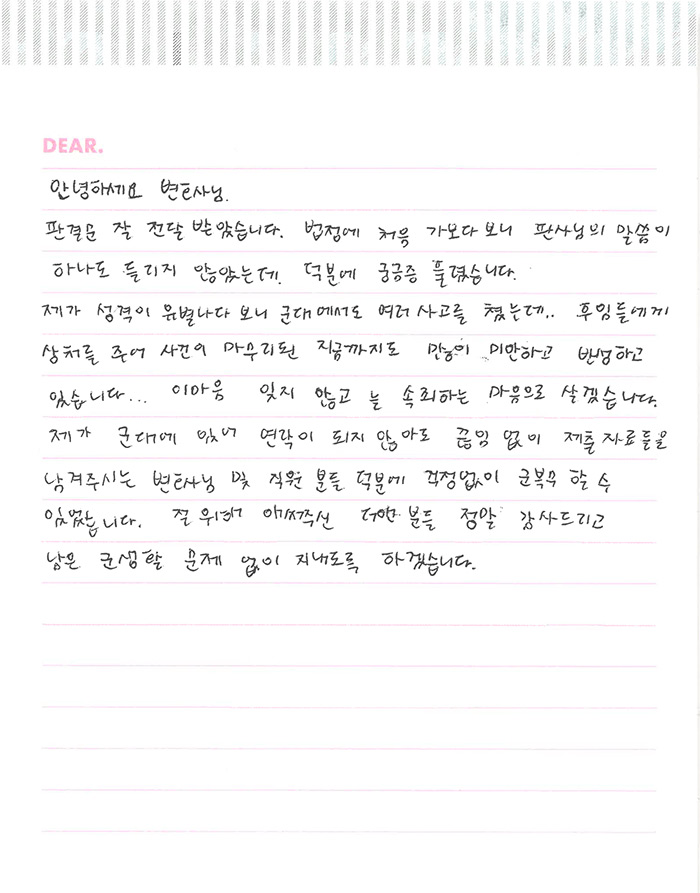 DEAR.
안녕하세요 변호사님.
판결문 잘 전달 받았습니다. 법정에 처음 가보다보니 판사님의 말씀이
하나도 들리지 않았는데. 덕분에 궁금증 풀렸습니다.
제가 성격이 유별나다 보니 군대에서도 여러 사고를 쳤는데.. 후임들에게
상처를 주어 사건이 마무리된 지금까지도 많이 미안하고 반성하고
있습니다... 이마음 잊지 않고 늘 속죄하는 마음으로 살겠습니다.
제가 군대에 있어 연락이 되지 않아도 끊임 없이 제출자료들을
남겨주시는 변호사님 및 직원 분들 덕분에 걱정없이 군복무 할 수
있었습니다. 절 위해 애써주신 분들 정말 감사드리고
남은 군생활 문제 없이 지내도록 하겠습니다.